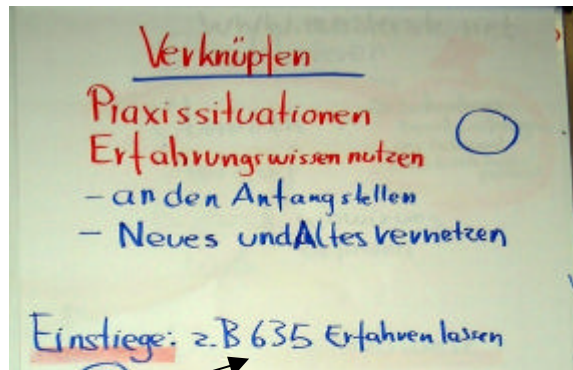 Verknüpfen
Praxissituationen
Erfahrungswissen nutzen
- an den Anfang stellen
- Neues und Altes vernetzen
Einstiege: z.B 635 Erfahren lassen